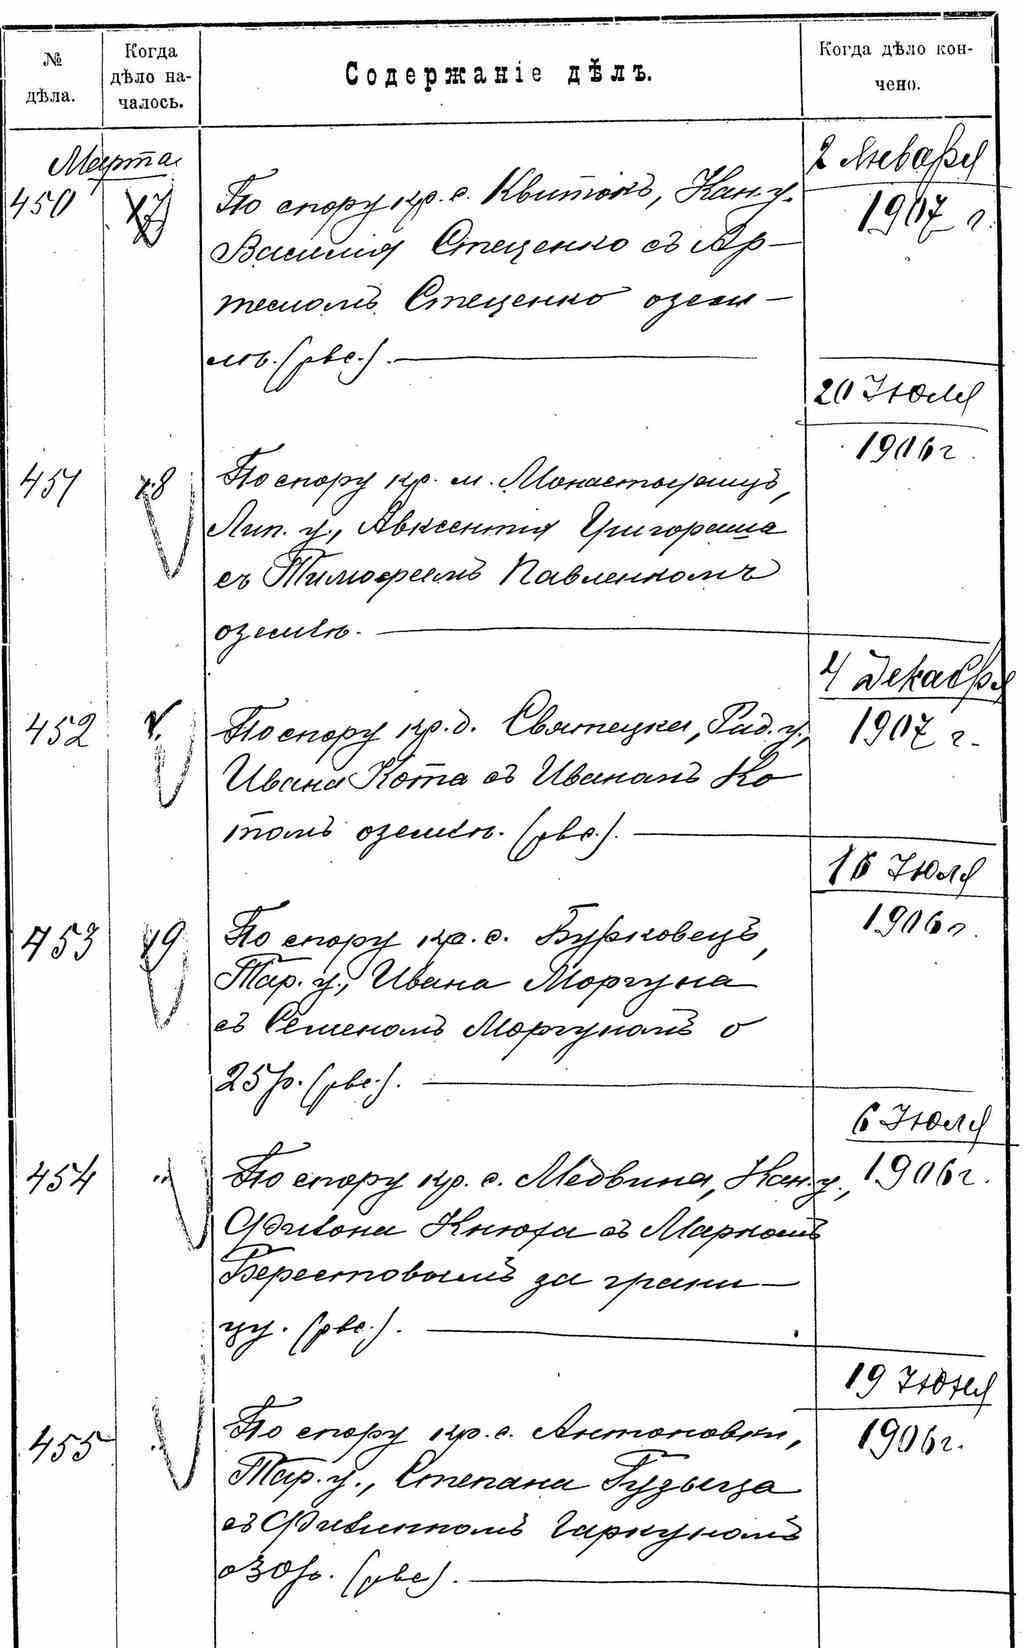 № дѣла.
Когда дѣло на-
чалось.
Содержаніе дѣлъ.
Когда дѣло кон-
чено.
Марта
450
17
По спору кр. с. Квитокъ, Кан. у.
Василія Стеценко съ Ар-
темомъ Стеценко о зем-
лѣ. (рвс.).
2 Января
1907 г.
451
18
По спору кр. м. Монастырищъ,
Лип. у., Авксентія Григораша
съ Тимофеемъ Павленкомъ
о землѣ.
20 Іюля
1906 г.
452
По спору кр. д. Святецка, Рад. у.,
Ивана Кота съ Иваномъ Ко
томъ о землѣ. (рвс.).
4 Декабря
1907 г.
453
19
По спору кр. с. Бурковецъ,
Тар. у., Ивана Моргуна
съ Семеномъ Моргуномъ о
25 р. (рвс.).
16 Іюля
1906 г.
454
"
По спору кр. с. Медвина, Кан. у.,
Фивона Кнюха съ Маркомъ
Берестовымъ за грани-
цу. (рвс.).
6 Іюля
1906 г.
455
"
По спору кр. с. Антоновки,
Тар. у., Степана Гудыща
съ Гаркуномъ
о 30 р. (рвс).
19 Іюня
1906 г.